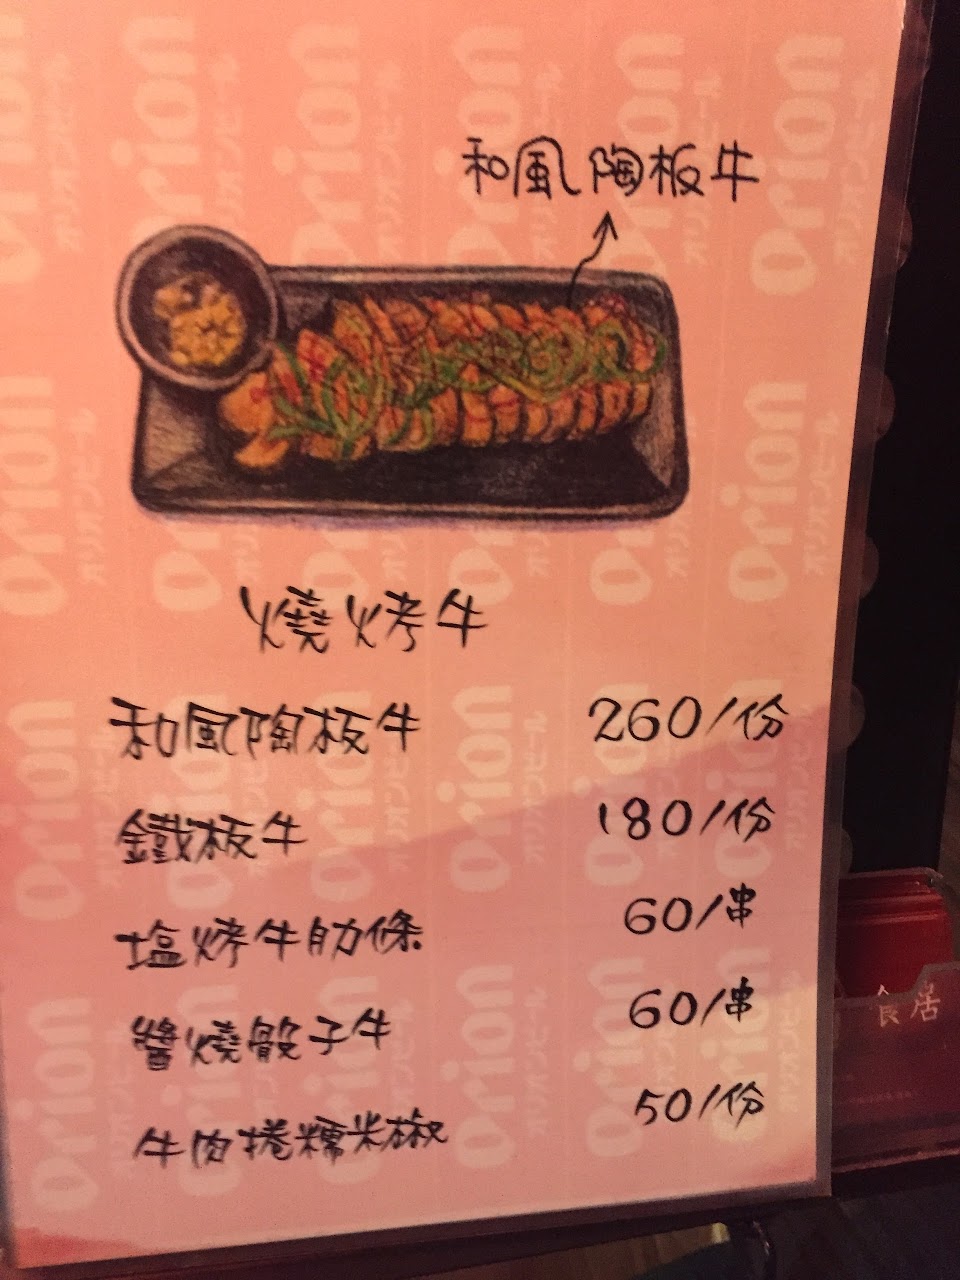 和風陶板牛
燒烤牛
和風陶板牛 260/份
鐵板牛 180/份
塩烤牛肋條 60/串
醬燒骰子牛 60/串
牛肉捲糯米椒 50/份
食居
Orion
オリオンビール